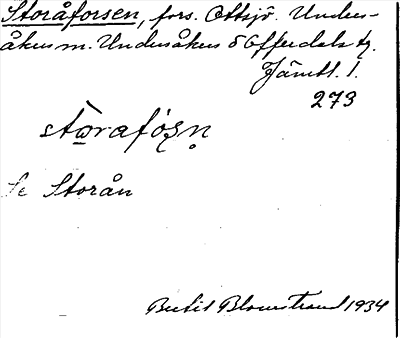 Storåforsen, fors. Ottsjö. Unders-
åkers m. Undersåkers o Offerdals tg.
Jämtl. l.
273
stòrafóşn̥
Se Storån
Bertil Blomstrand 1934